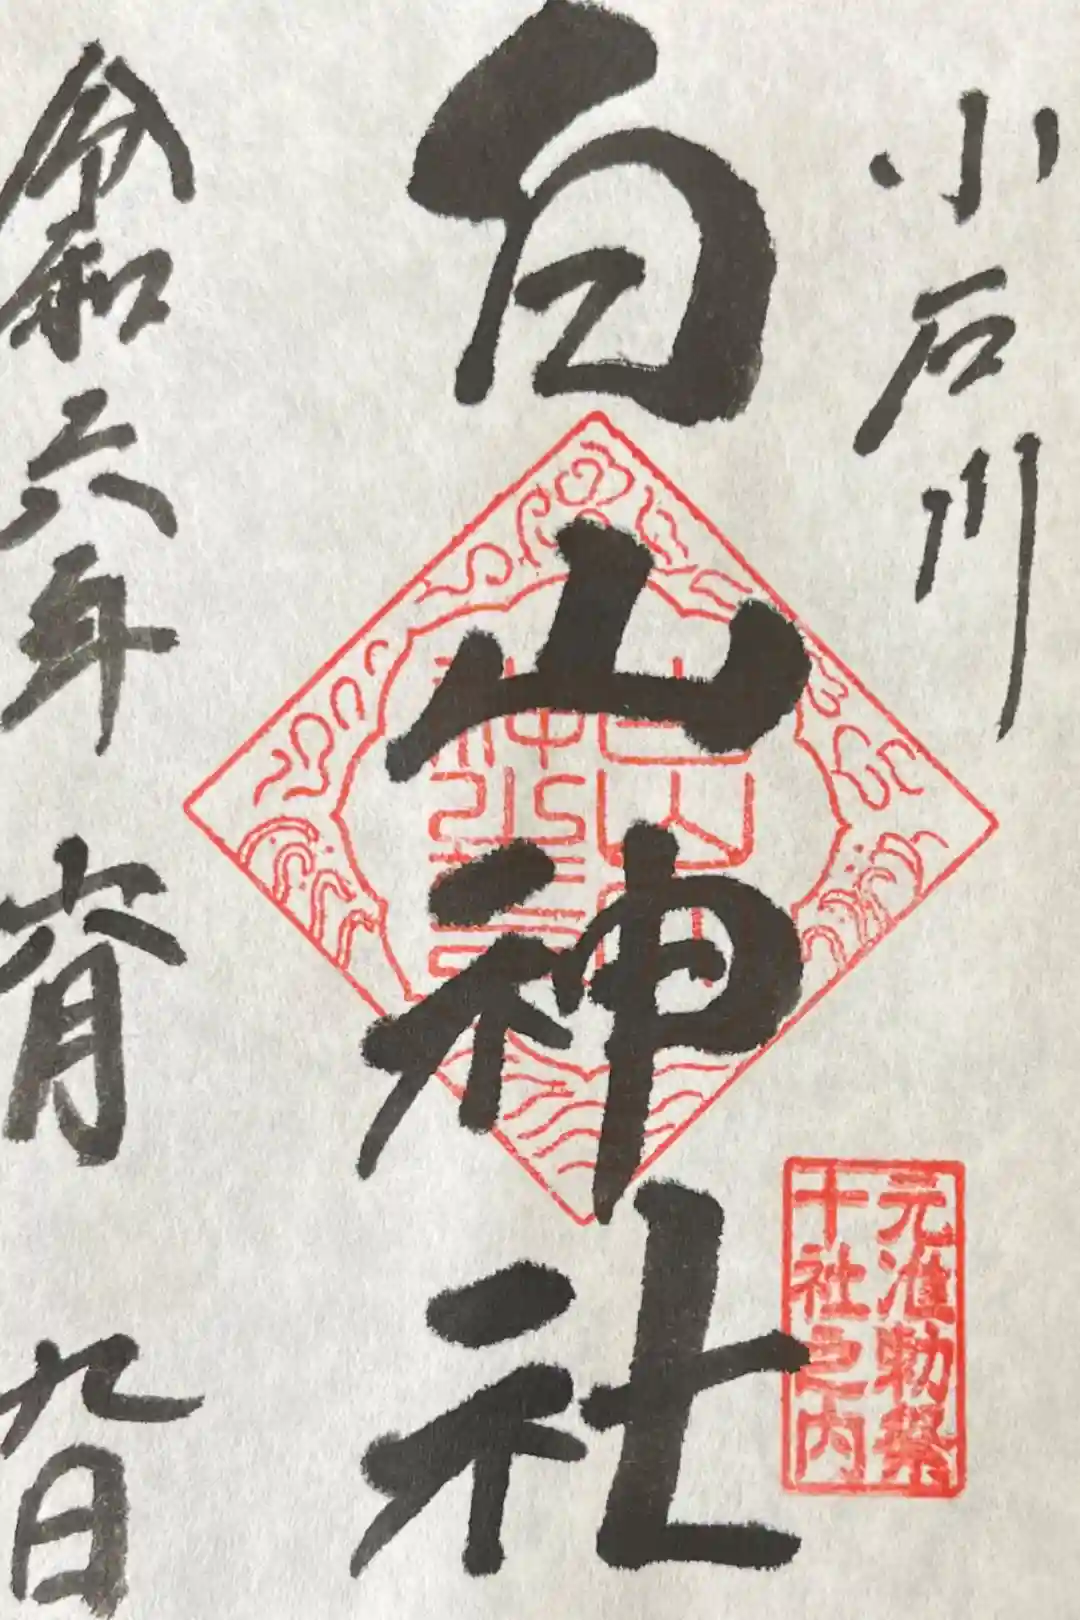 小石川
白山神社
元准勅祭
十社之内
令和六年 六月 九日